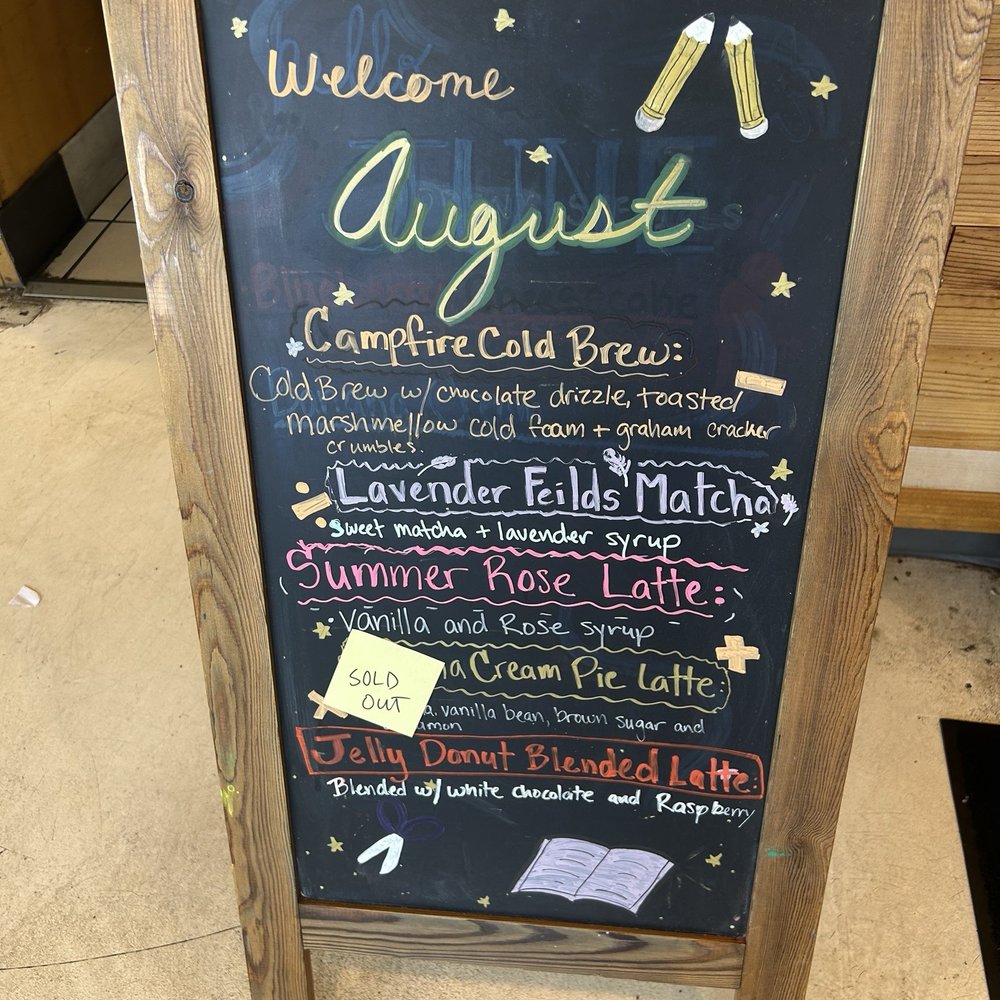 Welcome
August
Campfire Cold Brew:
Cold Brew w/ chocolate drizzle, toasted
marshmellow cold foam + graham cracker
crumbles.
Lavender Feilds Matcha
sweet matcha + lavender syrup
Summer Rose Latte:
Vanilla and Rose syrup
SOLD
OUT
Cream Pie Latte:
vanilla bean, brown sugar and
Jelly Donut Blended Latte:
Blended w/ white chocolate and Raspberry